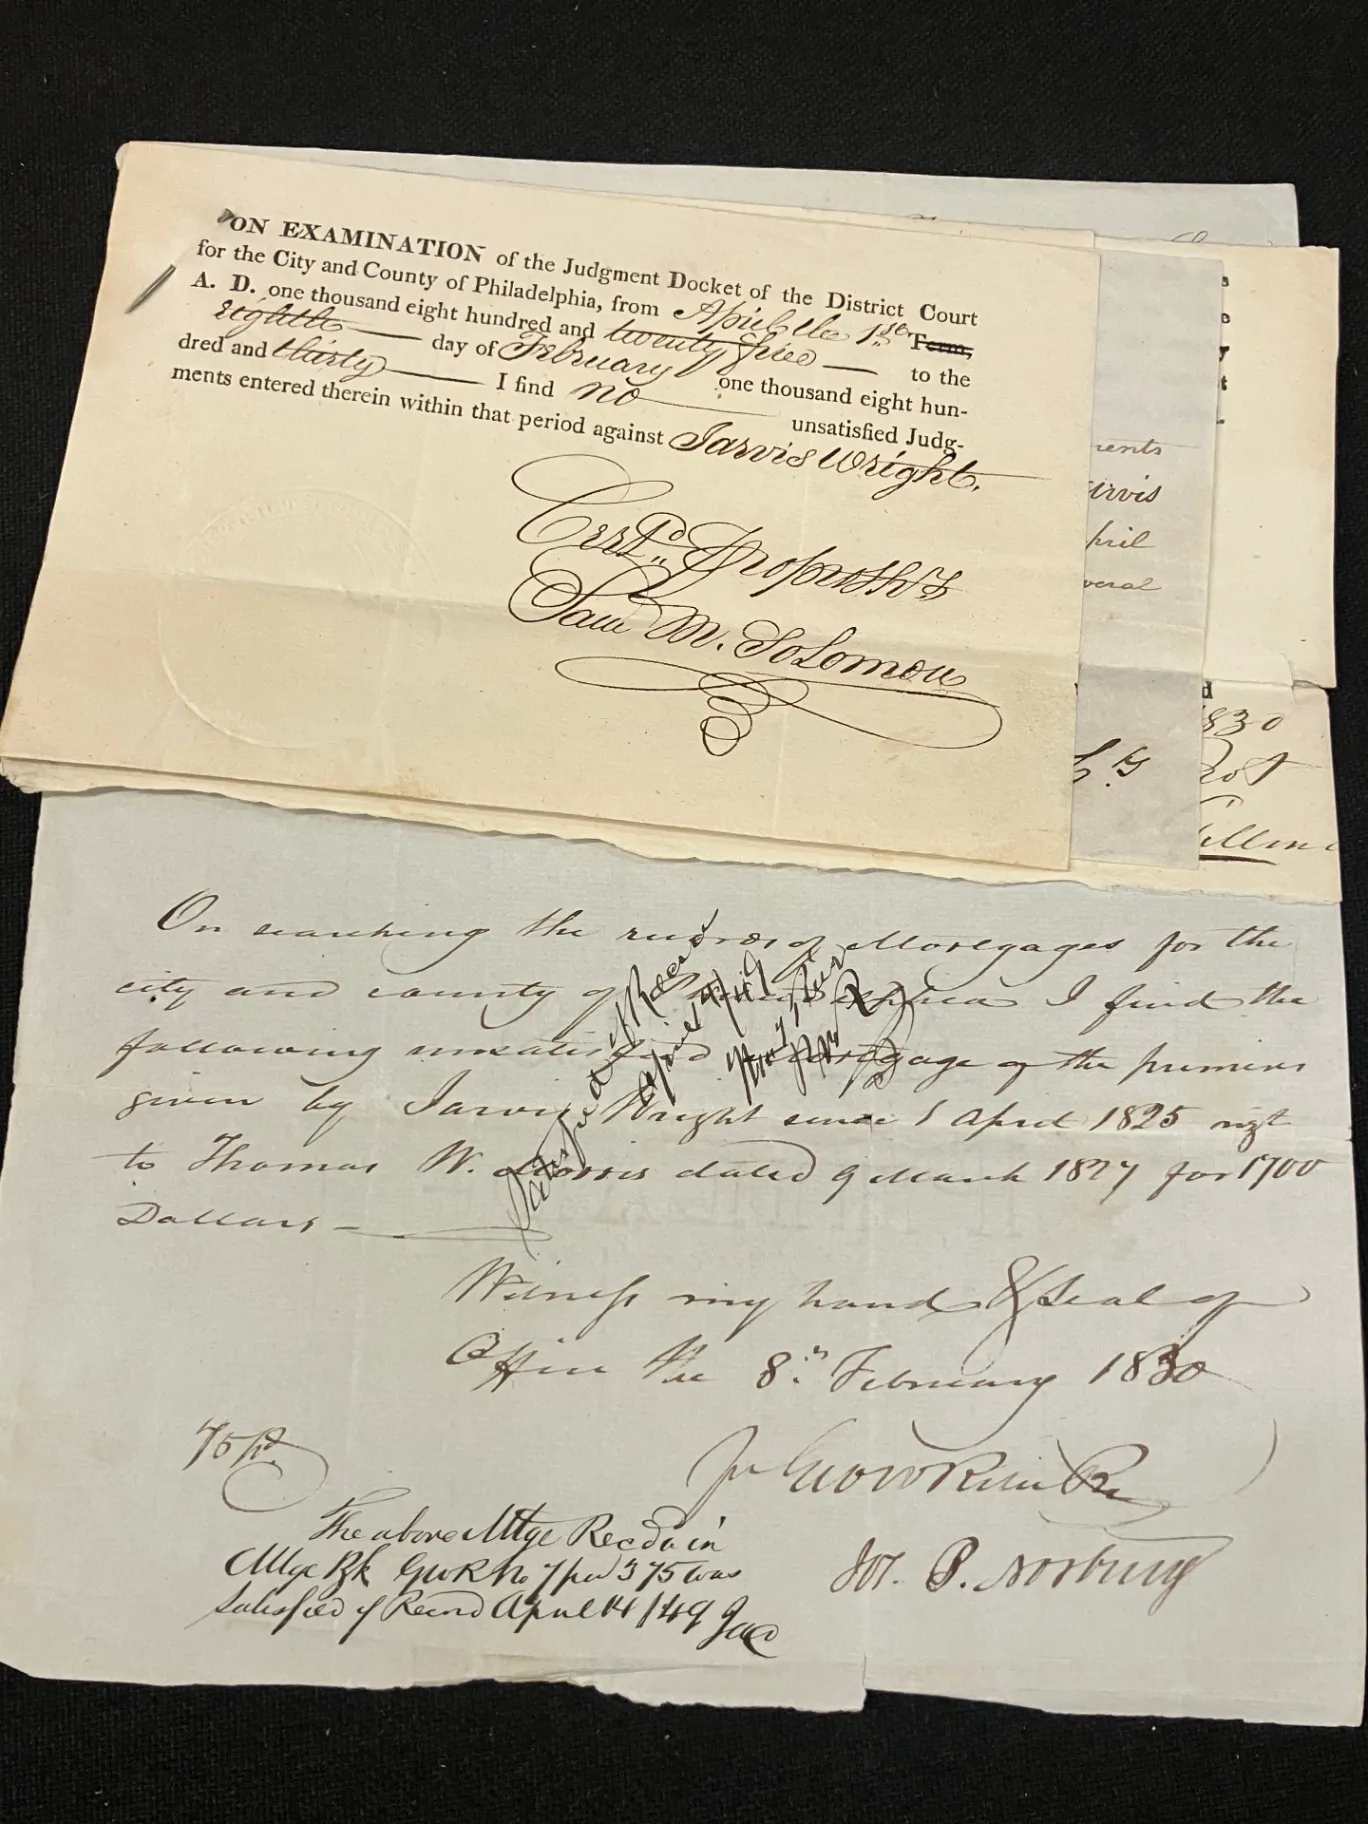 ON EXAMINATION of the Judgment Docket of the District Court
for the City and County of Philadelphia, from April the 1st Term,
A. D. one thousand eight hundred and twenty five to the
eighth day of February one thousand eight hun-
dred and thirty I find no unsatisfied Judg-
ments entered therein within that period against Jarvis Wright.
Cert. Pro Prothty
Saml M. Solomon
ments
arvis
pril
veral
d
1830
Rot
On searching the records of Mortgages for the
city and county of Philadelphia I find the
following unsatisfied Mortgage of the premises
given by Jarvis Wright since 1 April 1825 
to Thomas W. Morris dated 9 March 1827 for 1700
Dollars
Satisfied of Record
April 14/49
Witness my hand & Seal of
Office the 8th February 1830
75
Jos. B. Norbury
The above Mtge Recd in
Mtge Bk GWR No 7 pa 375 was
Satisfied of Record April 14/49